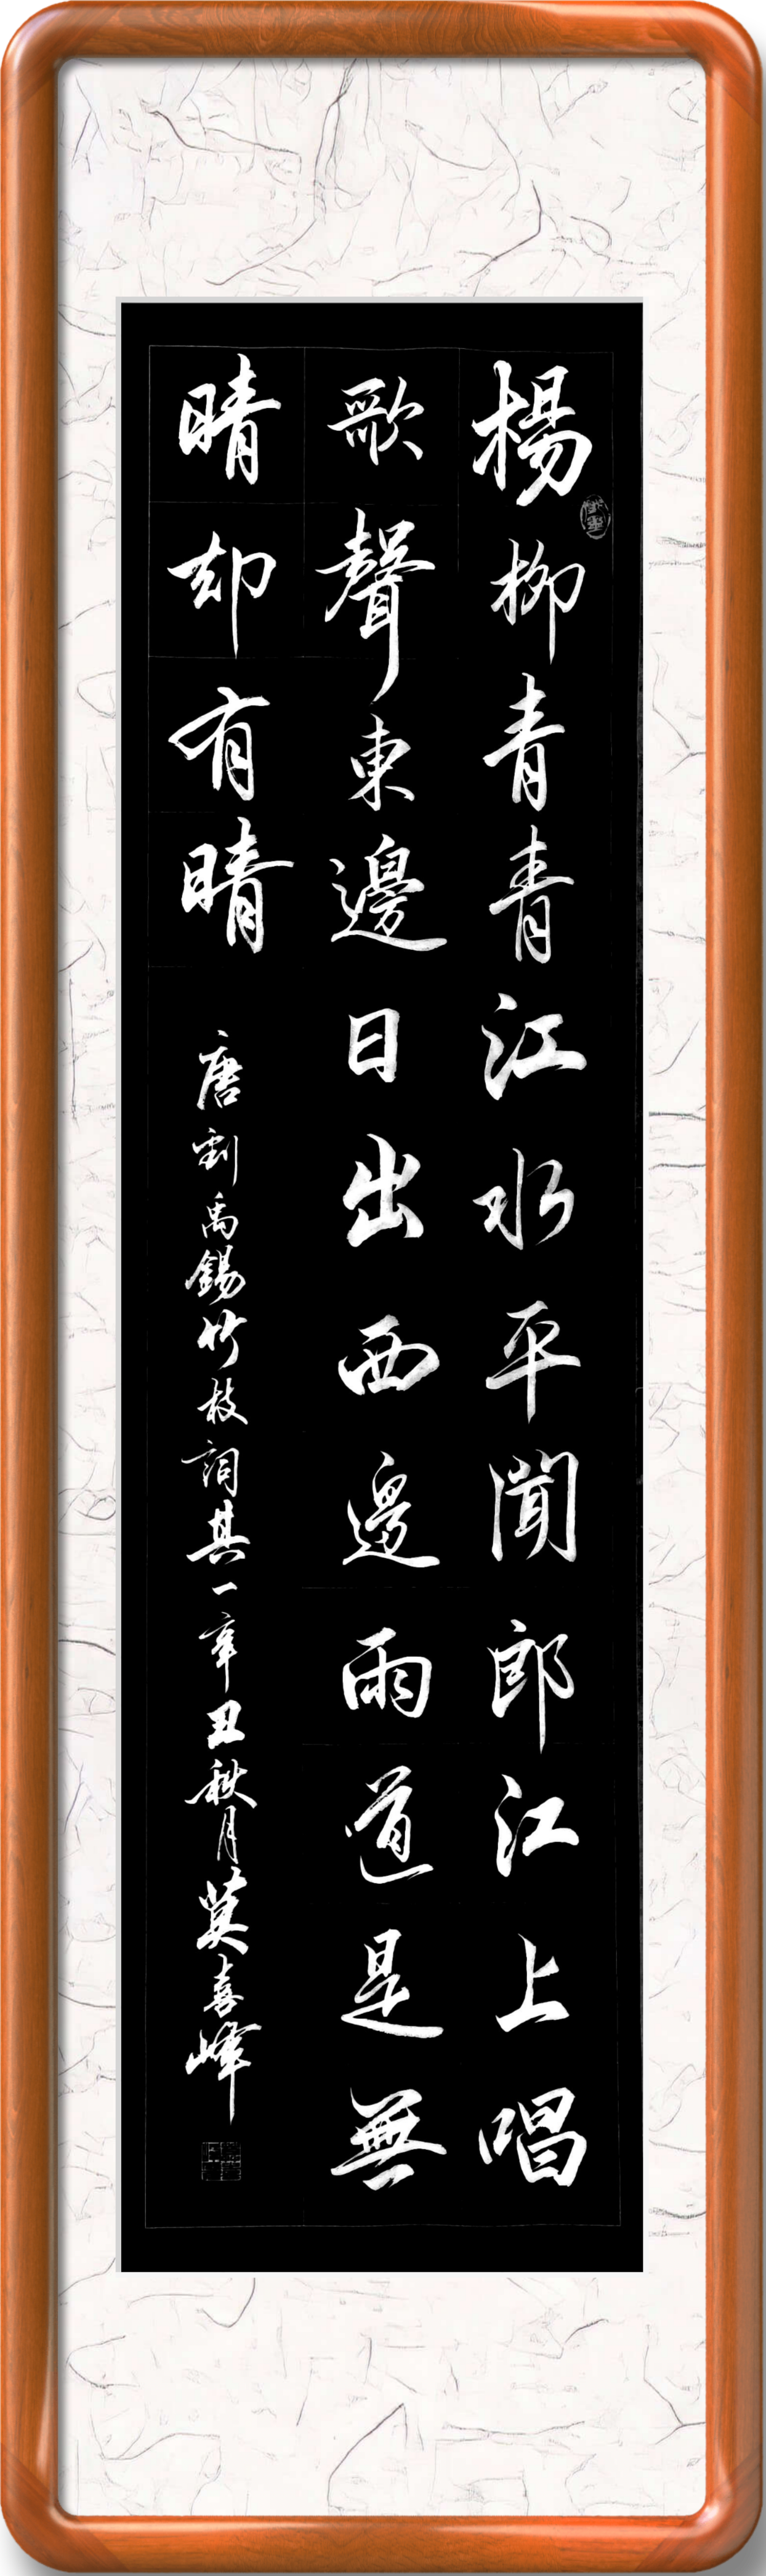 楊柳青青江水平聞郎江上唱
歌聲東邊日出西邊雨道是無
晴却有晴
唐劉禹錫竹枝詞其一辛丑秋月莫喜峰